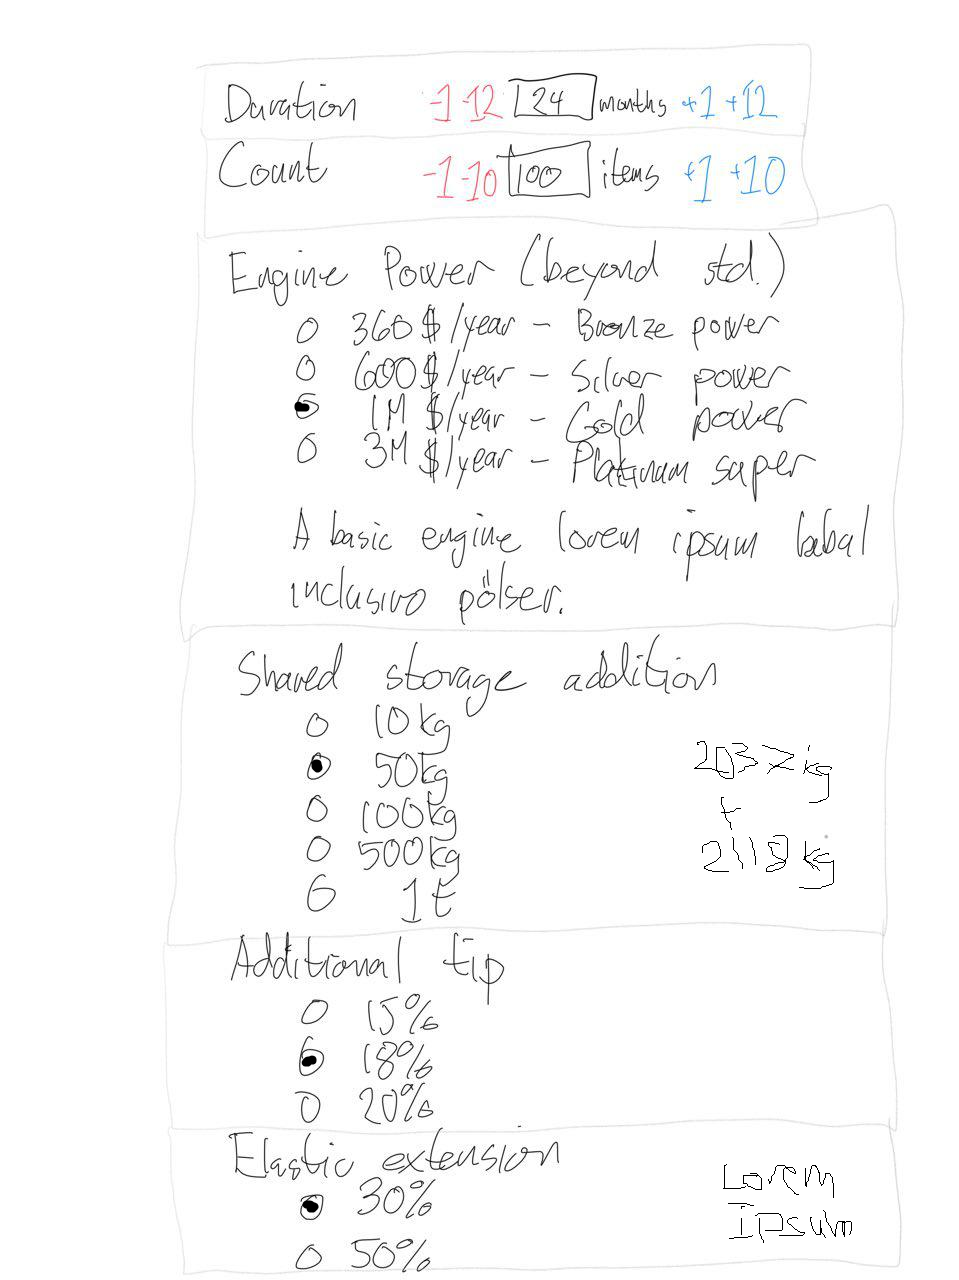 Duration -1 -12 24 months +1 +12
Count -1 -10 100 items +1 +10
Engine Power (beyond std.)
360$/year - Bronze power
600$/year - Silver power
1M $/year - Gold power
3M $/year - Platinum super
A basic engine lorem ipsum babal
inclusivo pölser.
Shared storage addition
10kg
50kg
100kg
500kg
1t
2037kg
+
2118kg
Additional tip
15%
18%
20%
Elastic extension
30%
50%
Lorem
Ipsum